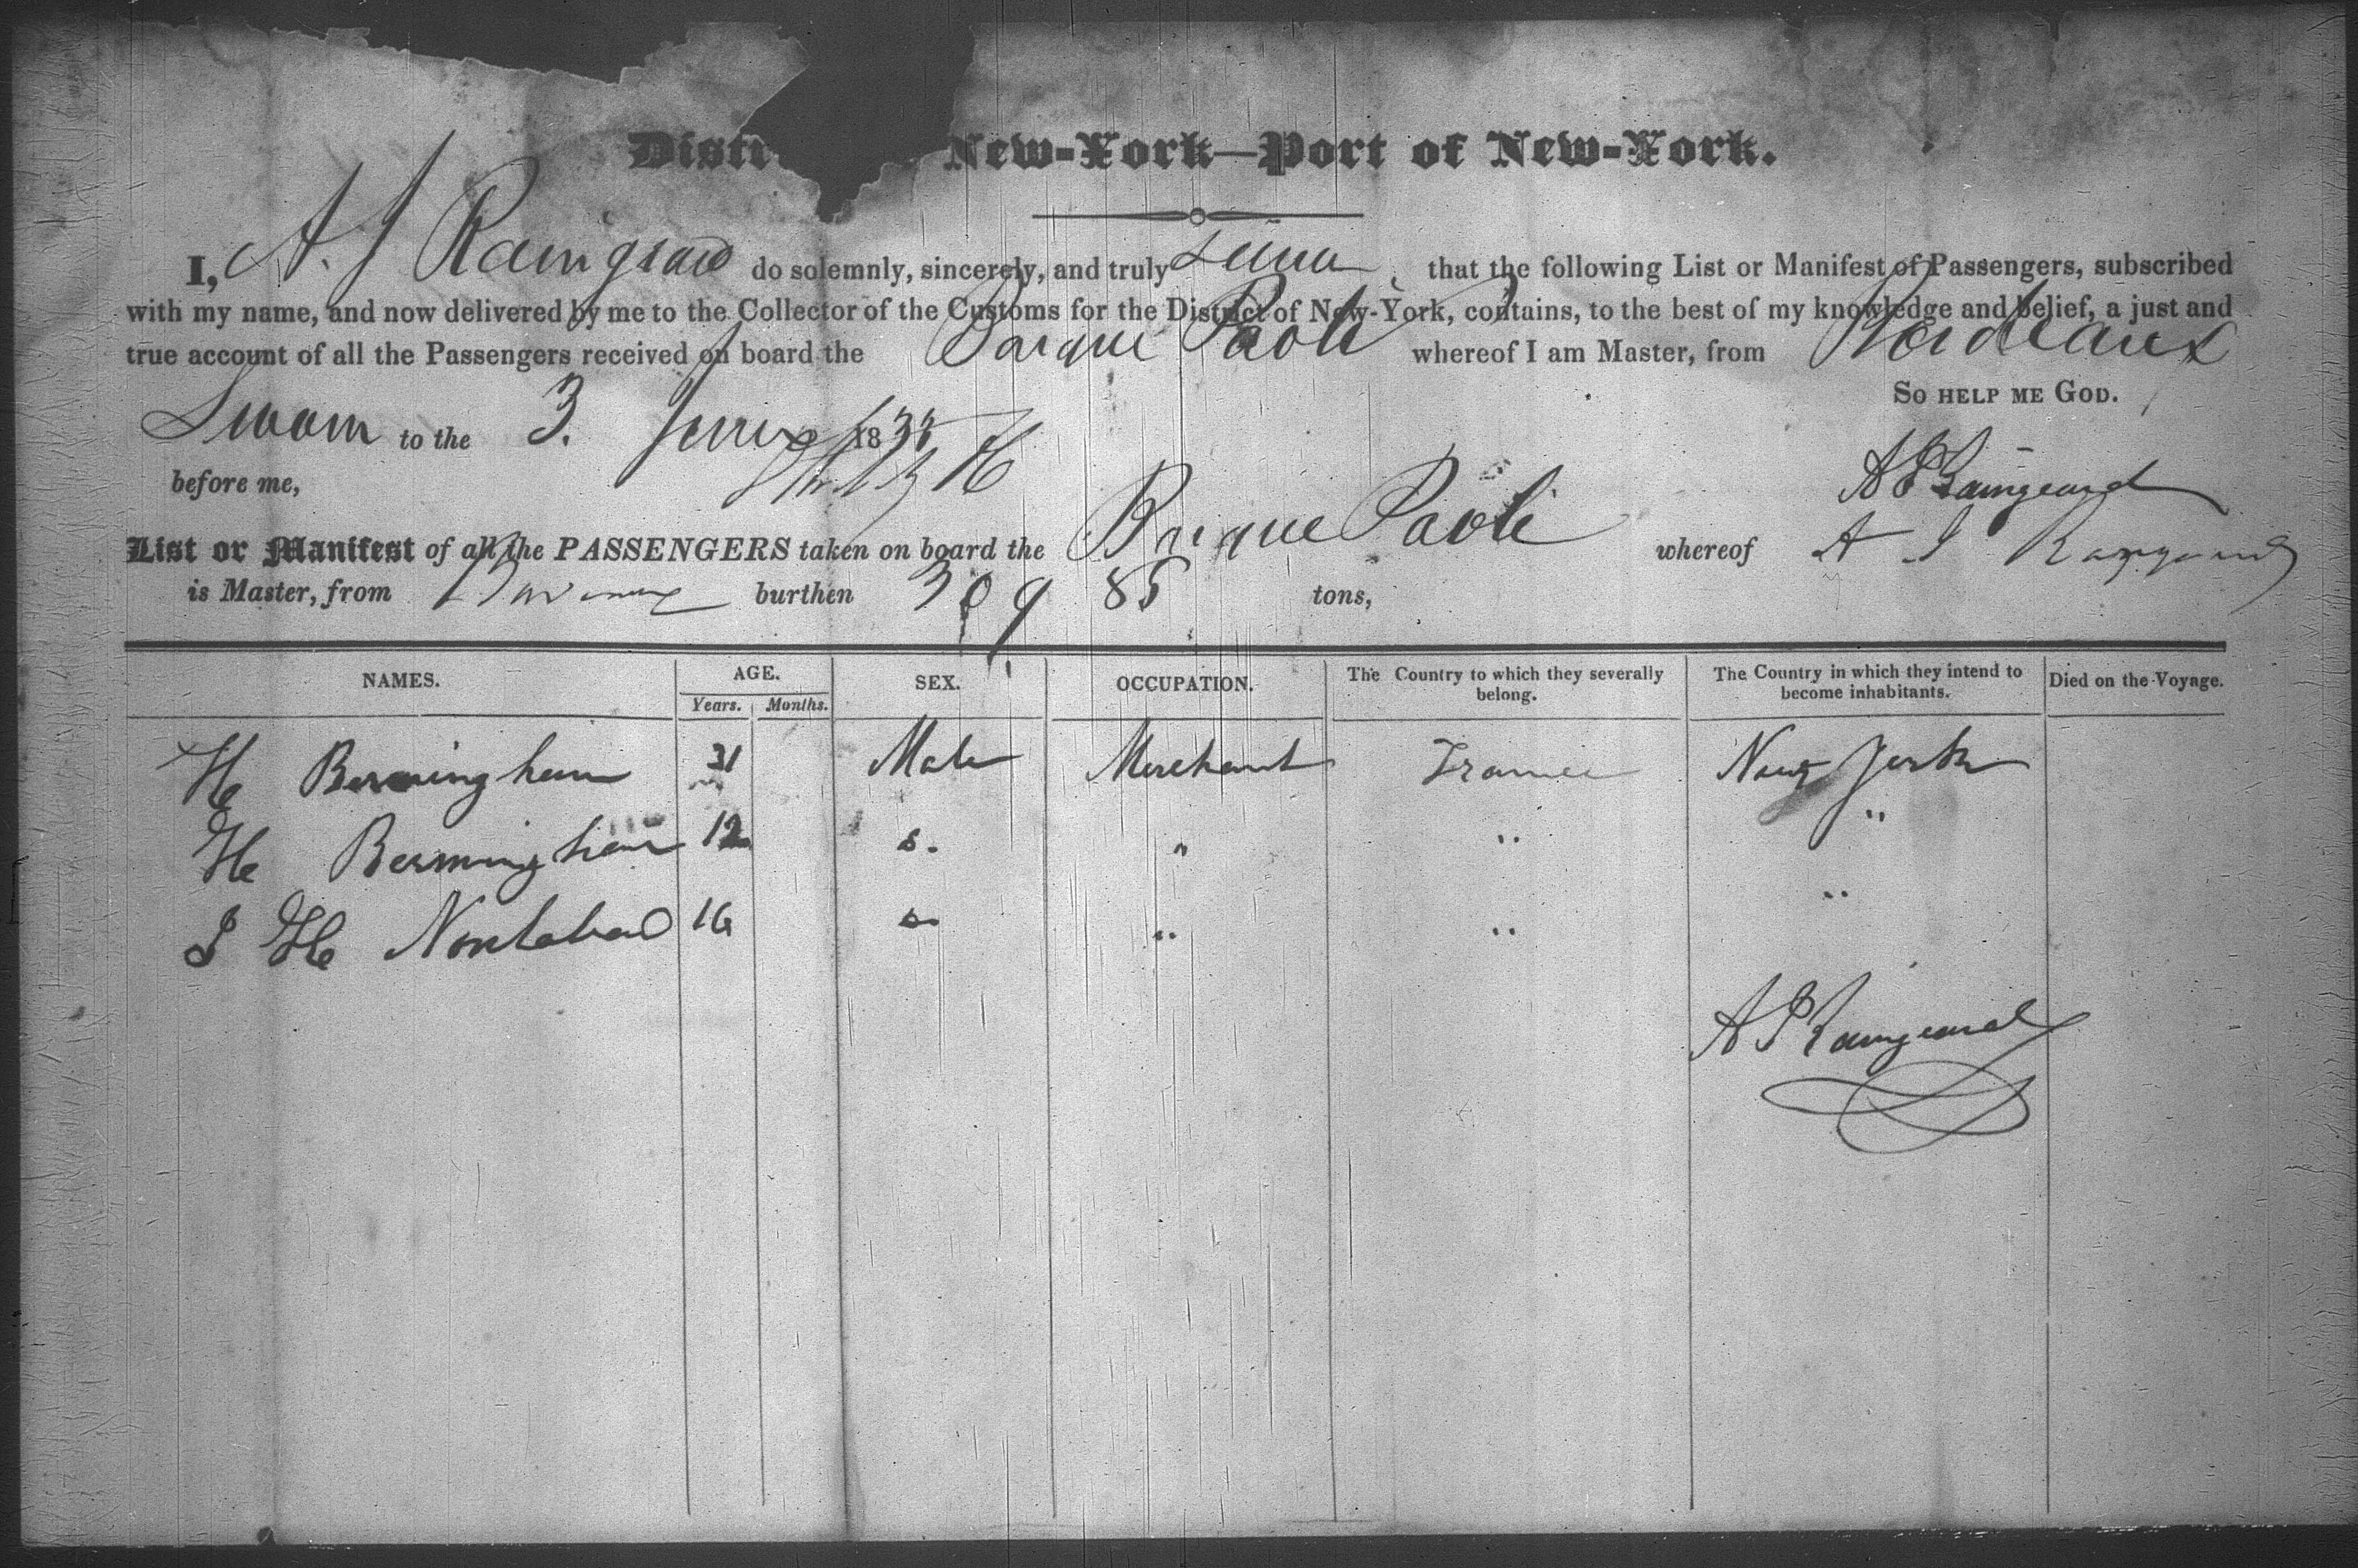 Distri New-York—Port of New-York.
I, A. J Raingeard do solemnly, sincerely, and truly that the following List or Manifest of Passengers, subscribed
with my name, and now delivered by me to the Collector of the Customs for the District of New-York, contains, to the best of my knowledge and belief, a just and
true account of all the Passengers received on board the Barque Paoli whereof I am Master, from Bordeaux
SO HELP ME GOD.
Sworn to the 3. June 18
before me,
A J Raingeard
List or Manifest of all the PASSENGERS taken on board the Barque Paoli whereof A J
is Master, from burthen 309 85 tons,
NAMES. AGE. SEX. OCCUPATION. The Country to which they severally belong. The Country in which they intend to become inhabitants. Died on the Voyage.
Years. Months.
H Bermingham 31 Male Merchant France New York
H Bermingham 12 " " "
J H 16 " " "
A J Raingeard